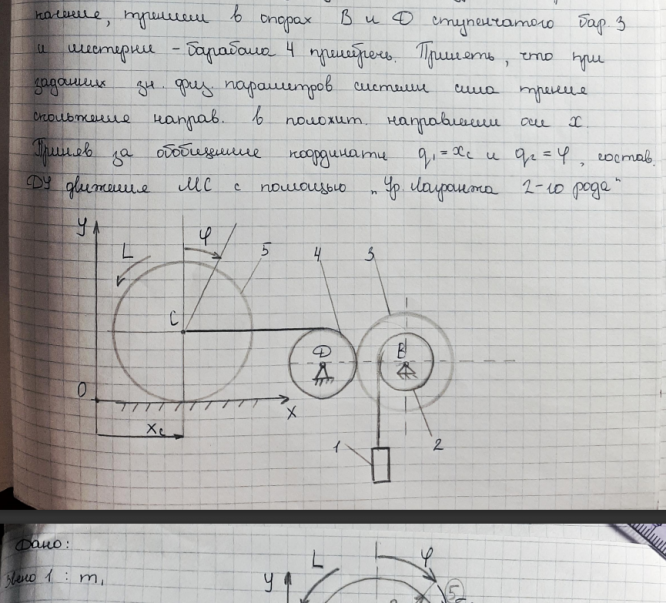 трением в опорах В и D ступенчатого бар. 3
и шестерни - барабана 4 пренебречь. Принять, что при
заданных зн. физ. параметров системы сила трения
скольжения направ. в положит. направлении оси x.
Приняв за обобщенные координаты q₁ = x_c и q₂ = φ, состав.
ДУ движения МС с помощью „Ур. Лагранжа 2-го рода"
y
L
φ
5
4
3
C
D
B
O
x
x_c
1
2
Дано:
Звено 1 : m₁
L
φ
y
5